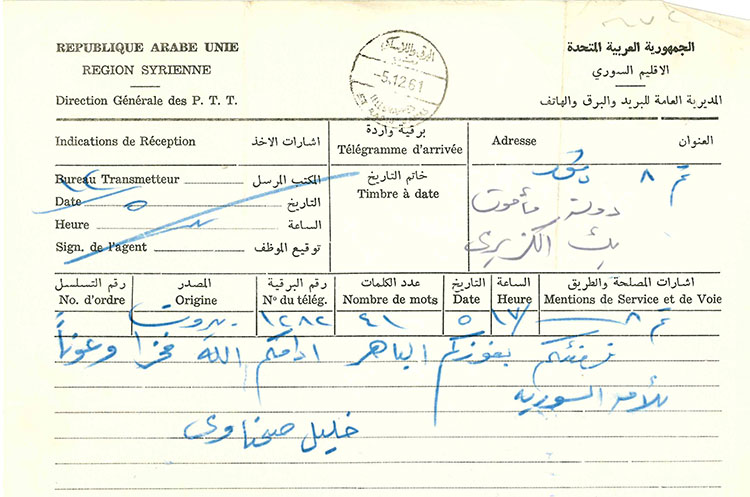 REPUBLIQUE ARABE UNIE
REGION SYRIENNE
Direction Générale des P. T. T.
الجمهورية العربية المتحدة
الاقليم السوري
المديرية العامة للبريد والبرق والهاتف
5.12.61
Indications de Réception اشارات الاخذ
Bureau Transmetteur المكتب المرسل
Date التاريخ
Heure الساعة
Sign. de l'agent توقيع الموظف
برقية واردة
Télégramme d'arrivée
خاتم التاريخ
Timbre à date
Adresse العنوان
٨
دولة مأمون
بك الكزبري
رقم التسلسل المصدر رقم البرقية عدد الكلمات التاريخ الساعة اشارات المصلحة والطريق
No. d'ordre Origine Nº du télég. Nombre de mots Date Heure Mentions de Service et de Voie
بيروت ١٢٨٢ ٤١ ٥ ١٧ ٨
نهنئكم بفوزكم الباهر ادامكم الله فخرا وعوناً
للأمة السورية
خليل صحناوي